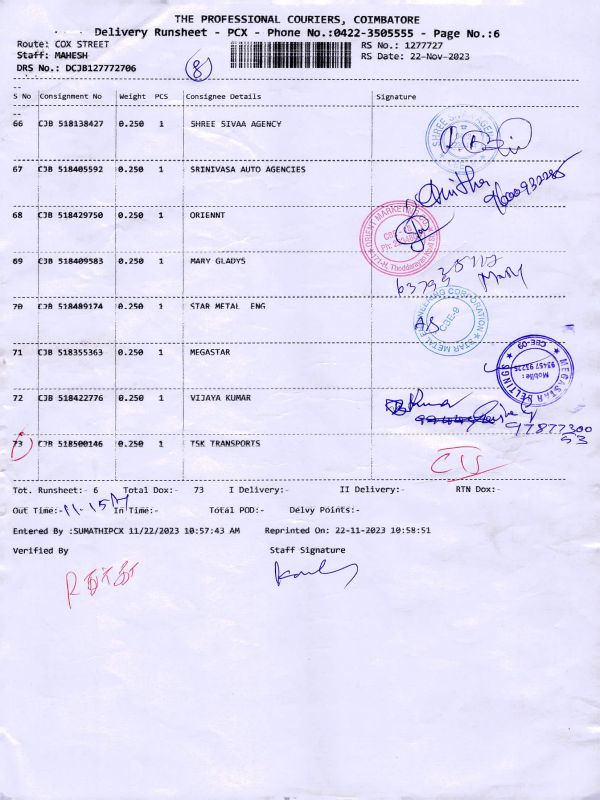 THE PROFESSIONAL COURIERS, COIMBATORE
Delivery Runsheet - PCX - Phone No.:0422-3505555 - Page No.:6
Route: COX STREET RS No.: 1277727
Staff: MAHESH RS Date: 22-Nov-2023
DRS No.: DCJB127772706 8
S No Consignment No Weight PCS Consignee Details Signature
66 CJB 518138427 0.250 1 SHREE SIVAA AGENCY
67 CJB 518405592 0.250 1 SRINIVASA AUTO AGENCIES
68 CJB 518429750 0.250 1 ORIENNT
69 CJB 518409583 0.250 1 MARY GLADYS Mary
70 CJB 518489174 0.250 1 STAR METAL ENG
STAR METAL ENGINEERING CORPORATION CBE-9
71 CJB 518355363 0.250 1 MEGASTAR
MEGASTAR BELTINGS CBE-09 Mobile:
72 CJB 518422776 0.250 1 VIJAYA KUMAR
9787730053
73 CJB 518500146 0.250 1 TSK TRANSPORTS
Tot. Runsheet:- 6 Total Dox:- 73 I Delivery:- II Delivery:- RTN Dox:-
Out Time:- 11-15 In Time:- Total POD:- Delvy Points:-
Entered By :SUMATHIPCX 11/22/2023 10:57:43 AM Reprinted On: 22-11-2023 10:58:51
Verified By Staff Signature